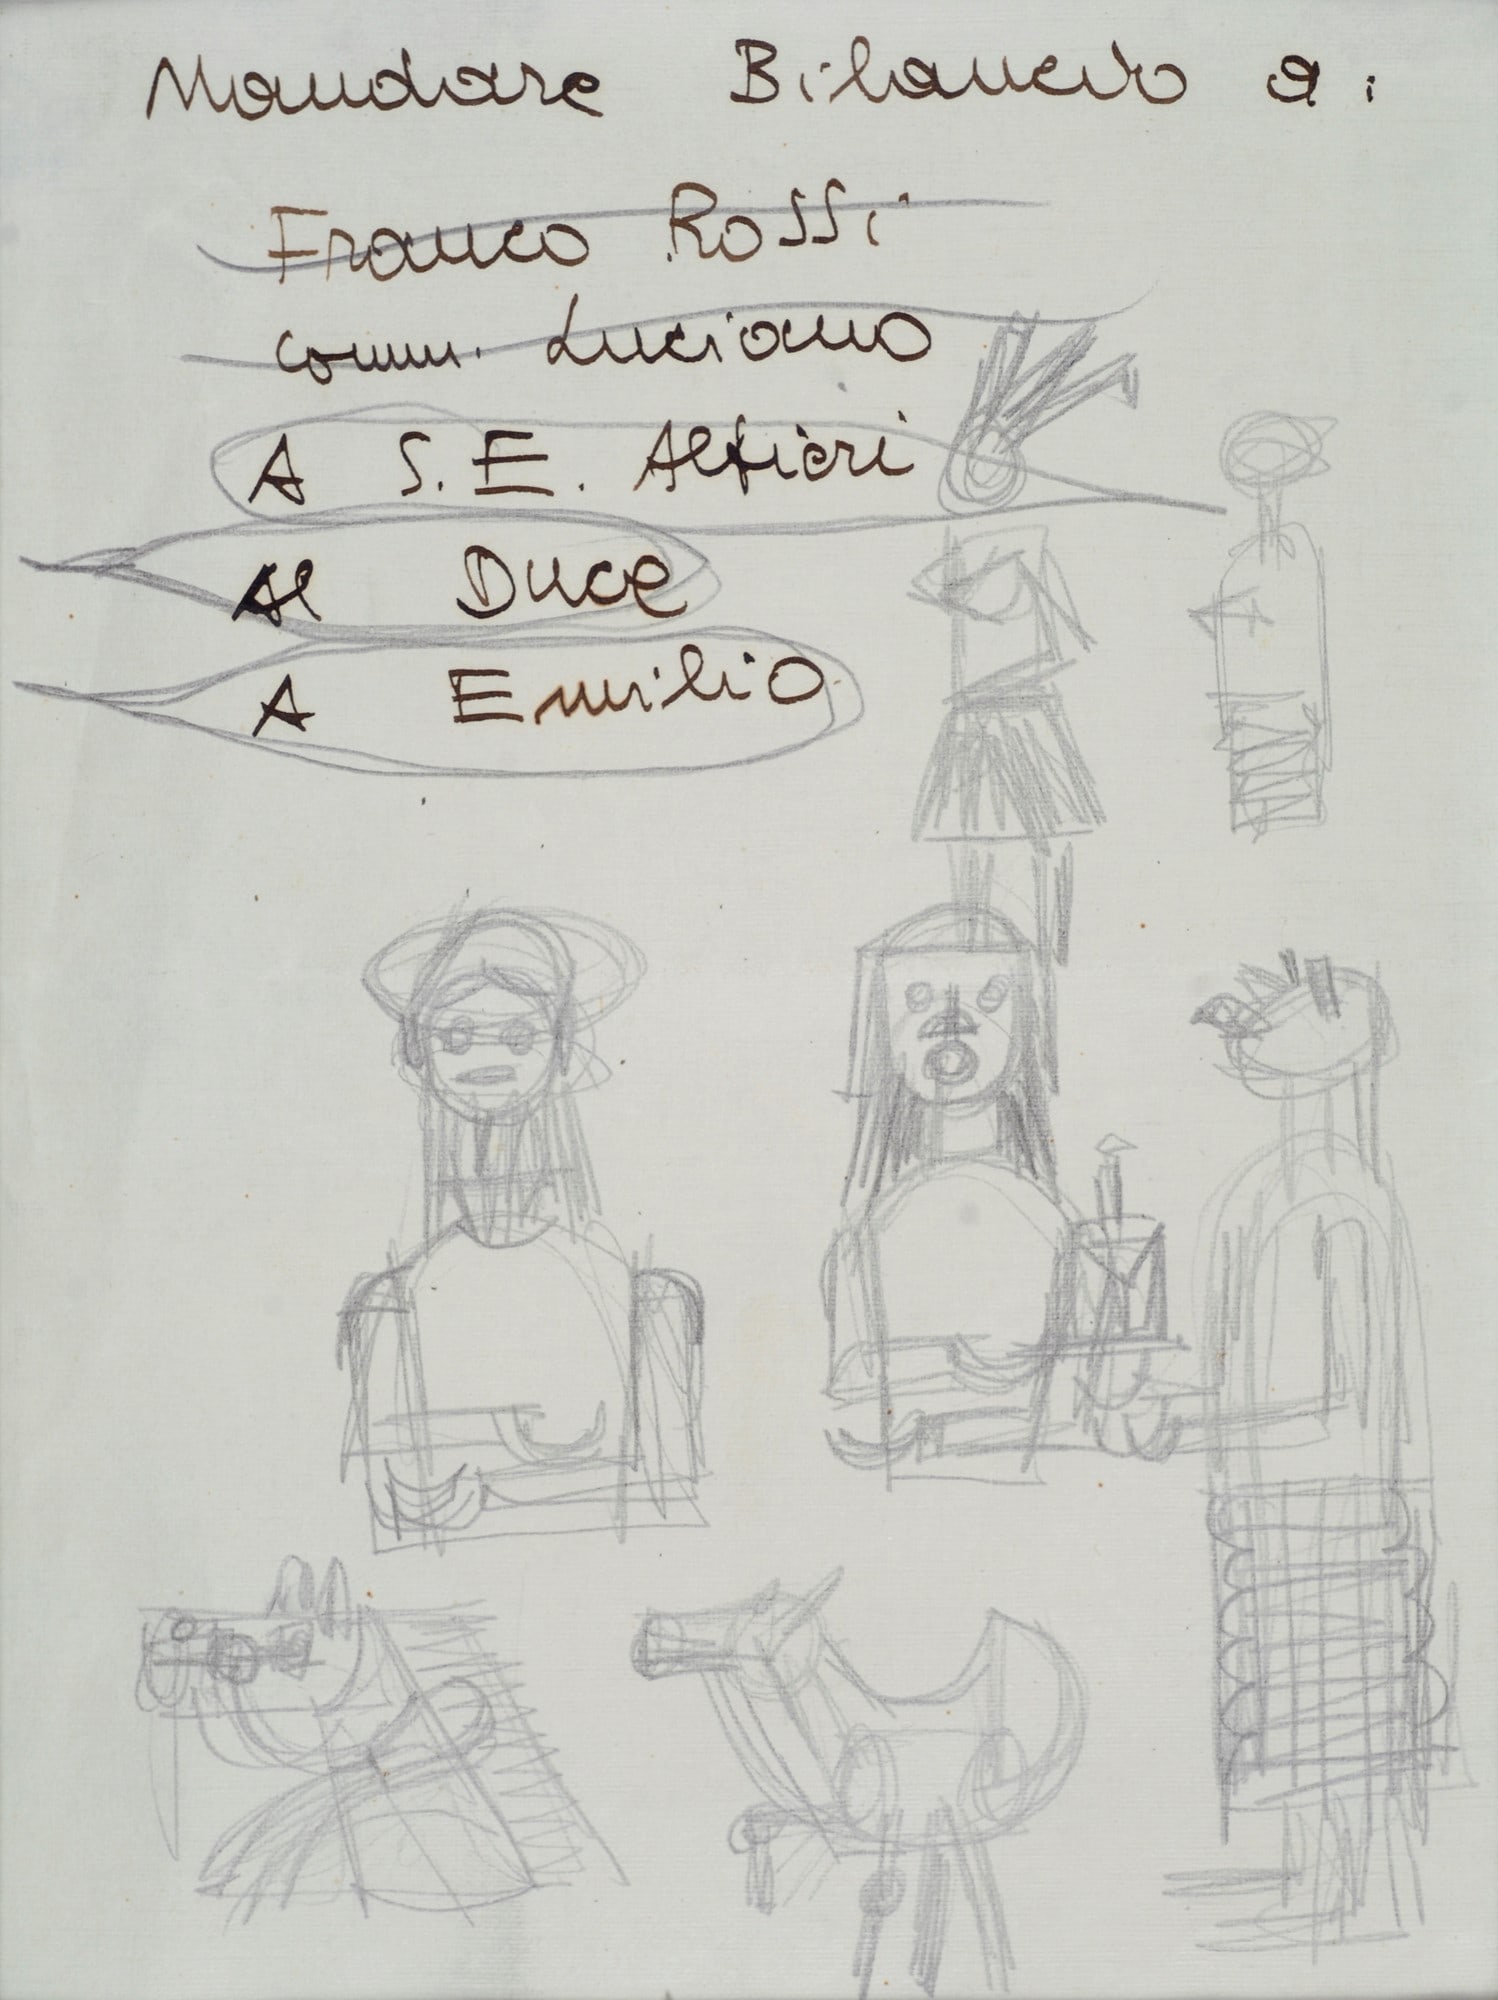 Mandare Bilancio a:
Franco Rossi
comm. Luciano
A S.E. Alfieri
Al Duce
A Emilio